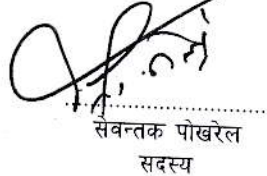 सेवन्तक पोखरेल
सदस्य